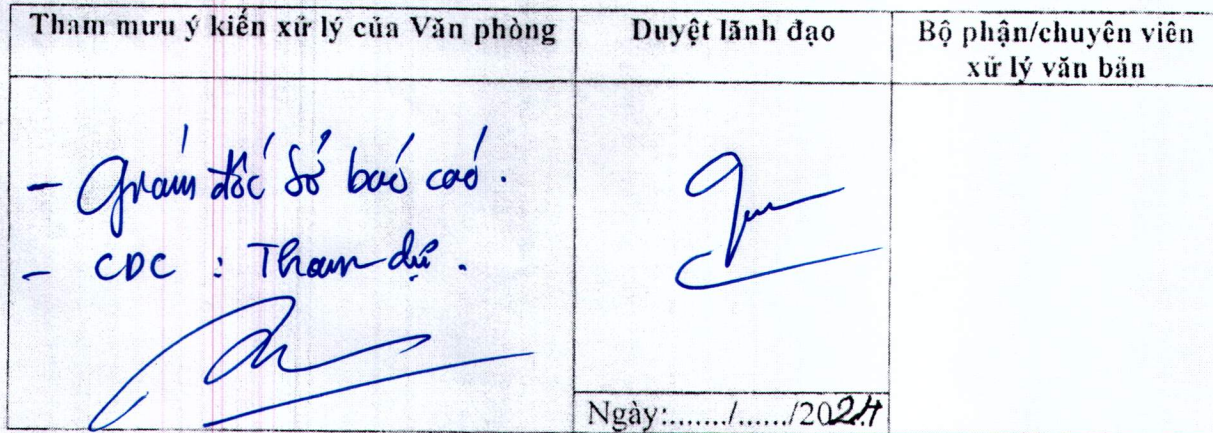 Tham mưu ý kiến xử lý của Văn phòng
Duyệt lãnh đạo
Bộ phận/chuyên viên
xử lý văn bản
- Giám đốc Sở báo cáo.
- CDC : Tham dự.
Ngày:......./....../2024